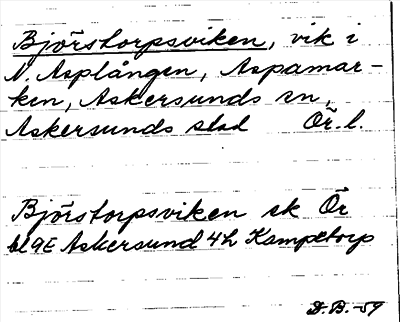 Björstorpsviken, vik i
N. Asplången, Aspamar-
ken, Askersunds sn,
Askersunds stad Ör. l.
Björstorpsviken ek Ör
bl 9E Askersund 4h Kampetorp
D. B. -59